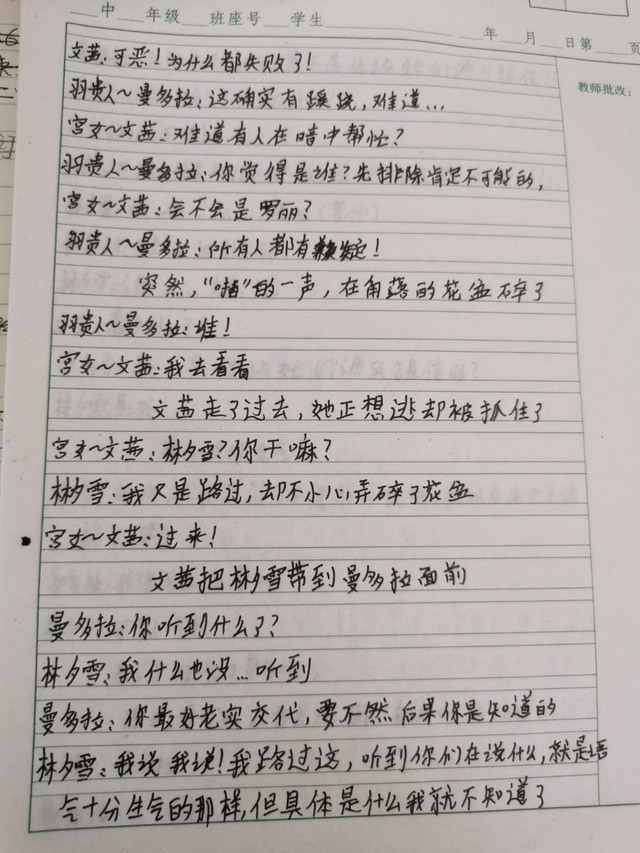 中 年级 班座号 学生
年 月 日第 页
教师批改：
文茜：可恶！为什么都失败了！
羽贵人～曼多拉：这确实有蹊跷，难道…
宫女～文茜：难道有人在暗中帮忙？
羽贵人～曼多拉：你觉得是谁？先排除肯定不可能的，
宫女～文茜：会不会是罗丽？
羽贵人～曼多拉：所有人都有
突然，“啪”的一声，在角落的花盆碎了
羽贵人～曼多拉：谁！
宫女～文茜：我去看看
文茜走了过去，她正想逃却被抓住了
宫女～文茜：林夕雪？你干嘛？
林夕雪：我只是路过，却不小心弄碎了花盆
宫女～文茜：过来！
文茜把林夕雪带到曼多拉面前
曼多拉：你听到什么了？
林夕雪：我什么也没…听到
曼多拉：你最好老实交代，要不然后果你是知道的
林夕雪：我说 我说！我路过这，听到你们在说什么，就是语
气十分生气的那样，但具体是什么我就不知道了